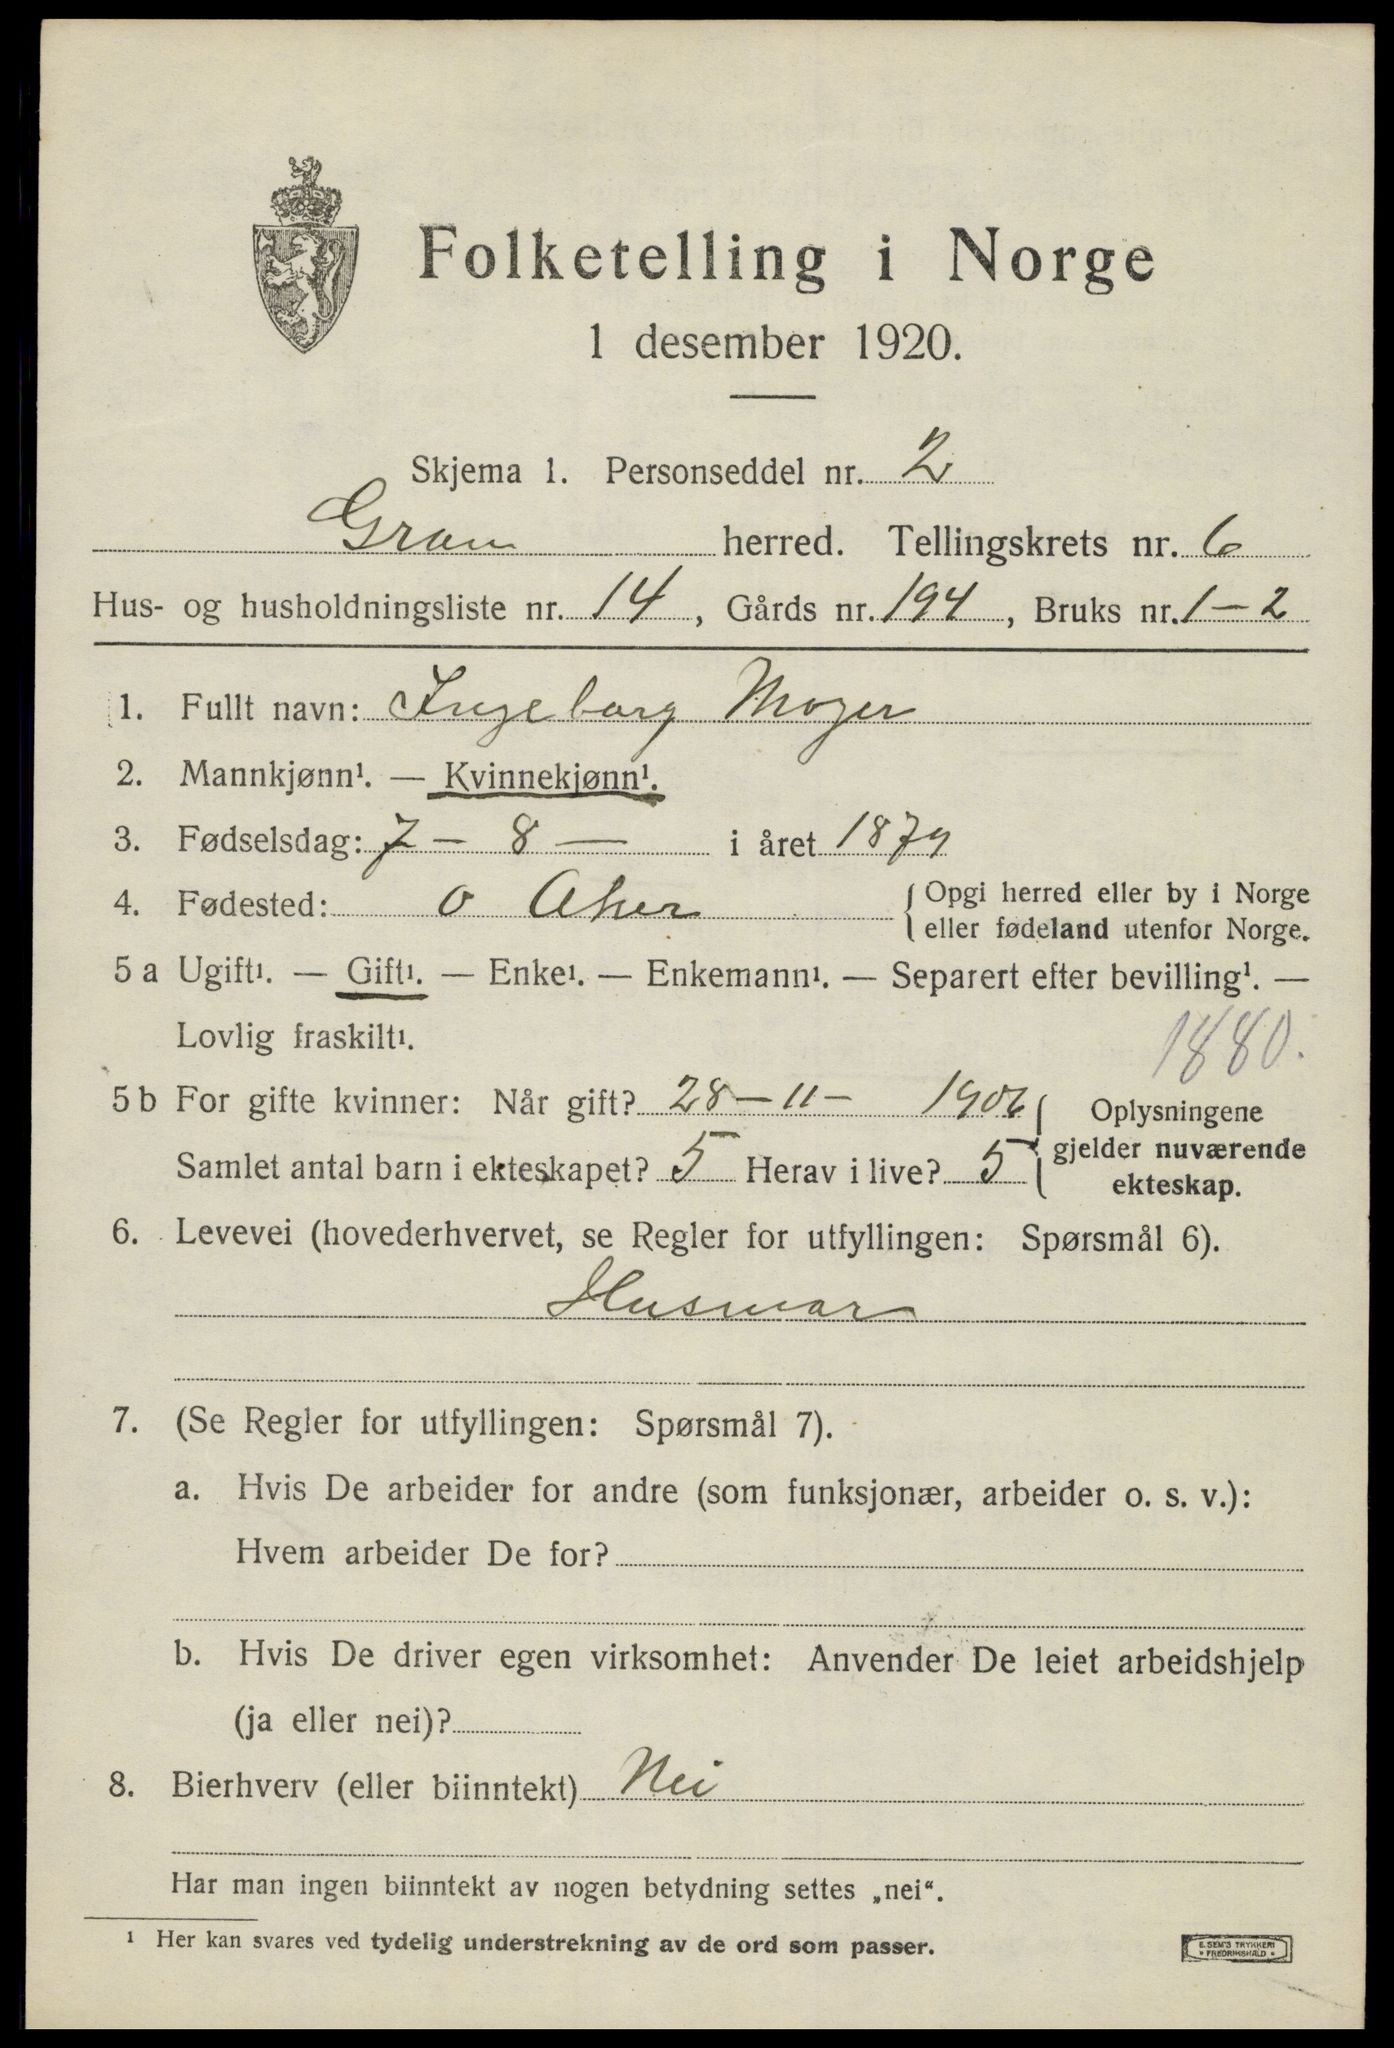 Folketelling i Norge
1 desember 1920.
Skjema 1. Personseddel nr. 2
Gran herred. Tellingskrets nr. 6
Hus- og husholdningsliste nr. 14, Gårds nr. 194, Bruks nr. 1-2
1. Fullt navn: Ingeborg Moger
2. Mannkjønn¹. — Kvinnekjønn¹.
3. Fødselsdag: 7 - 8 - i året 1879
4. Fødested: o Aker { Opgi herred eller by i Norge
eller fødeland utenfor Norge.
5 a Ugift¹. — Gift¹. — Enke¹. — Enkemann¹. — Separert efter bevilling¹. —
Lovlig fraskilt¹.
1880.
5 b For gifte kvinner: Når gift? 28 - 11 - 1906 { Oplysningene
Samlet antal barn i ekteskapet? 5 Herav i live? 5 gjelder nuværende
ekteskap.
6. Levevei (hovederhvervet, se Regler for utfyllingen: Spørsmål 6).
Husmor
7. (Se Regler for utfyllingen: Spørsmål 7).
a. Hvis De arbeider for andre (som funksjonær, arbeider o. s. v.):
Hvem arbeider De for?
b. Hvis De driver egen virksomhet: Anvender De leiet arbeidshjelp
(ja eller nei)?
8. Bierhverv (eller biinntekt) Nei
Har man ingen biinntekt av nogen betydning settes „nei“.
¹ Her kan svares ved tydelig understrekning av de ord som passer.
E. SEM'S TRYKKERI
FREDRIKSHALD